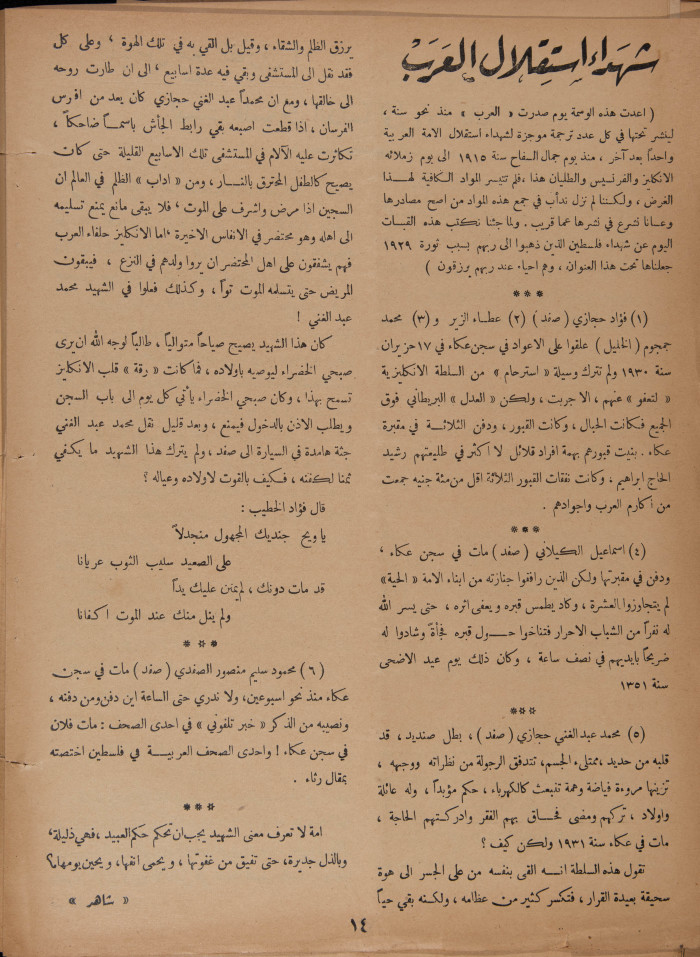 شهداء استقلال العرب
( اعدت هذه الوسمة يوم صدرت « العرب » منذ نحو سنة ،
لينشر تحتها في كل عدد ترجمة موجزة لشهداء استقلال الامة العربية
واحداً بعد آخر ، منذ يوم جمال السفاح سنة ١٩١٥ الى يوم زملائه
الانكليز والفرنسيس والطليان هذا ، فلم تتيسر المواد الكافية لهـذا
الغرض ، ولكننا لم نزل ندأب في جمع هذه المواد من اصح مصادرها
وعسانا نشرع في نشرها عما قريب . ولما جئنا نكتب هذه القبسات
اليوم عن شهداء فلسطين الذين ذهبوا الى ربهم بسبب ثورة ١٩٢٩
جعلناها تحت هذا العنوان ، وهم احياء عند ربهم يرزقون )
***
(١) فؤاد حجازي ( صفد ) (٢) عطـاء الزير و (٣) محمد
جمجوم ( الخليل ) علقوا على الاعواد في سجن عكاء في ١٧ حزيران
سنة ١٩٣٠ ولم تترك وسيلة « استرحام » من السلطة الانكليزية
« لتعفو » عنهم ، الا جربت ، ولكن « العدل » البريطاني فوق
الجميع فكانت الحبال ، وكانت القبور ، ودفن الثلاثـة في مقبرة
عكاء . بنيت قبورهم بهمة افراد قلائل لا اكثر في طليعتهم رشيد
الحاج ابراهيم ، وكانت نفقات القبور الثلاثة اقل من مئة جنيه جمعت
من اكارم العرب واجوادهم .
***
(٤) اسماعيل الكيلاني ( صفد ) مات في سجن عكاء ،
ودفن في مقبرتها ولكن الذين رافقوا جنازته من ابناء الامة « الحية »
لم يتجاوزوا العشرة ، وكاد يطمس قبره ويعفى اثره ، حتى يسر الله
له نفراً من الشباب الاحرار فتناخوا حـول قبره فجأة وشادوا له
ضريحاً بايديهم في نصف ساعة ، وكان ذلك يوم عيد الاضحى
سنة ١٣٥١
***
(٥) محمد عبد الغني حجازي ( صفد ) ، بطل صنديد ، قد
قلبه من حديد ، ممتلىء الجسم، تتدفق الرجولة من نظراته ووجهه ،
تزينها مروءة فياضة وهمة تنبعث كالكهرباء ، حكم مؤبداً ، وله عائلة
واولاد ، تركهم ومضى فحـاق بهم الفقر وادركـتهم الحاجة ،
مات في عكاء سنة ١٩٣١ ولكن كيف ؟
تقول هذه السلطة انـه القى بنفسه من على الجسر الى هوة
سحيقة بعيدة القرار ، فتكسر كثير من عظامه ، ولكنه بقي حياً
يرزق الظلم والشقاء ، وقيل بل القي به في تلك الهوة ، وعلى كل
فقد نقل الى المستشفى وبقي فيه عدة اسابيع ، الى ان طارت روحه
الى خالقها ، ومع ان محمداً عبد الغني حجازي كان يعد من افرس
الفرسان ، اذا قطعت اصبعه بقي رابط الجأش باسمـاً ضاحكاً ،
تكاثرت عليه الآلام في المستشفى تلك الاسابيع القليلة حتى كان
يصيح كالطفل المحترق بالنـار ، ومن « اداب » الظلم في العالم ان
السجين اذا مرض واشرف على الموت ، فلا يبقى مانع يمنع تسليمه
الى اهله وهو محتضر في الانفاس الاخيرة ، اما الانكليز حلفاء العرب
فهم يشفقون على اهل المحتضر ان يروا ولدهم في النزع ، فيبقون
المريض حتى يتسلمه الموت توّاً ، وكذلك فعلوا في الشهيد محمد
عبد الغني !
كان هذا الشهيد يصيح صياحاً متوالياً ، طالباً لوجه الله ان يرى
صبحي الخضراء ليوصيه باولاده ، فما كانت « رقة » قلب الانكليز
تسمح بهذا ، وكان صبحي الخضراء يأتي كل يوم الى باب السجن
ويطلب الاذن بالدخول فيمنع ، وبعد قليل نقل محمد عبد الغني
جثة هامدة في السيارة الى صفد ، ولم يترك هذا الشهيد ما يكفي
ثمنا لكفنه ، فكيف بالقوت لاولاده وعياله ؟
قال فؤاد الخطيب :
يا ويح جنديك المجهول منجدلاً
على الصعيد سليب الثوب عريانا
قد مات دونك ، لم يمنن عليك يداً
ولم ينل منك عند الموت اكفانا
***
(٦) محمود سليم منصور الصفدي ( صفد ) مات في سجن
عكاء منذ نحو اسبوعين، ولا ندري حتى الساعة اين دفن ومن دفنه ،
ونصيبه من الذكر « خبر تلفوني » في احدى الصحف : مات فلان
في سجن عكاء ! واحدى الصحف العربيـة في فلسطين اختصته
بمقال رثاء .
***
امة لا تعرف معنى الشهيد يجب ان تحكم حكم العبيد ، فهي ذليلة،
وبالذل جديرة، حتى تفيق من غفوتها ، ويحمى انفها، ويحين يومها،؟
« شاهر »
١٤